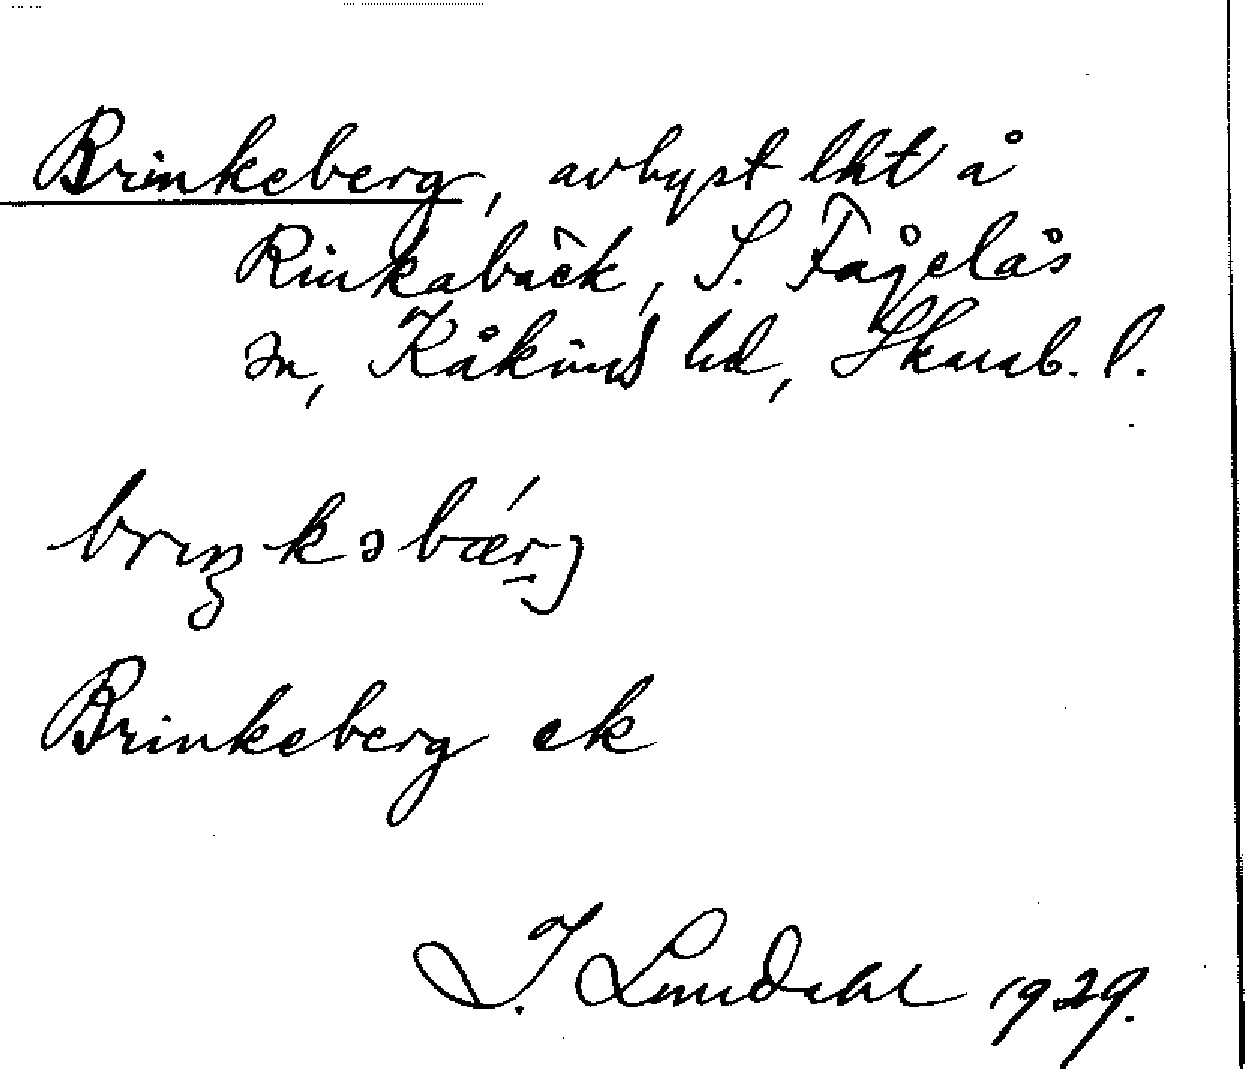 Brinkeberg, avhyst lht å
Rinkabäck, S. Fågelås
sn, Kåkinds hd, Skarab. l.
briŋkəbærj
Brinkeberg ek
I. Lundahl 1929.